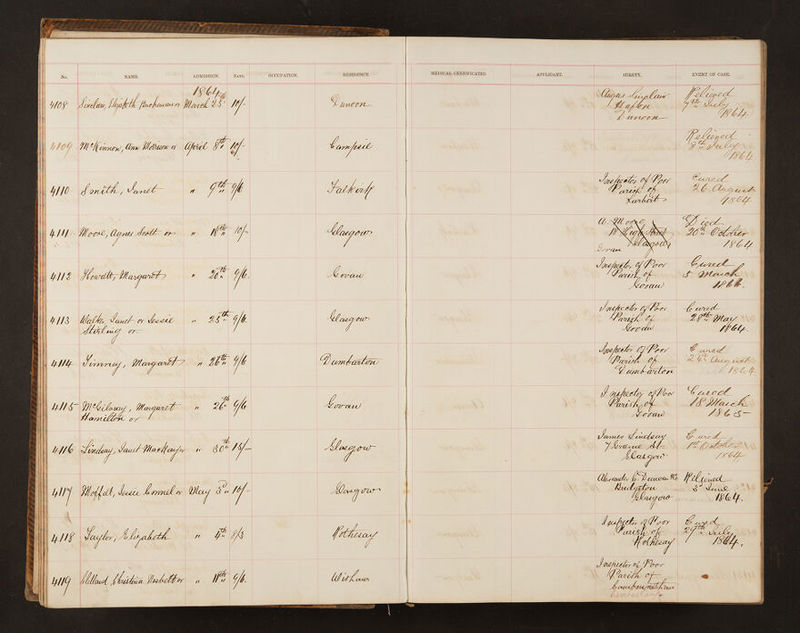 No. NAME. ADMISSION. RATE. OCCUPATION. RESIDENCE. MEDICAL CERTIFICATES. APPLICANT. SURETY. EVENT OF CASE.
1864
4108 Sinclair, Elizabeth Buchanan or March 25th 10/- Dunoon Angus Sinclair Dunoon Relieved 7th July 1864
4109 McKinnon, Ann Morrison or April 8th 10/- Campsie Relieved 8th July 1864
4110 Smith, Janet " 9th 9/6 Falkirk Inspector of Poor Parish of Larbert Cured 26 August 1864
4111 Moore, Agnes Scott or " 18th 10/- Glasgow A. Moore High Street Glasgow Govan Died 20th October 1864
4112 Howatt, Margaret " 20th 9/6 Govan Inspector of Poor Parish of Govan Cured 5 March 1866
4113 Walker Janet or Jessie Stirling or " 25th 9/6 Glasgow Inspector of Poor Parish of Govan Cured 28th May 1864
4114 Finney, Margaret " 26th 9/6 Dumbarton Inspector of Poor Parish of Dumbarton Cured 26 August 1864
4115 McGilvray, Margaret Hamilton or " 26th 9/6 Govan Inspector of Poor Parish of Govan Cured 18 March 1865
4116 Lindsay, Janet MacKay or " 30th 15/- Glasgow James Lindsay 7 St. Glasgow Cured 1st October 1864
4117 Moffat, Jessie Connel or May 3rd 10/- Glasgow Alexander Duncan Bridgeton Glasgow Relieved 3rd June 1864.
4118 Taylor, Elizabeth " 4th 8/3 Rothesay Inspector of Poor Parish of Rothesay Cured 29th July 1864.
4119 Christina Nesbett or " 11th 9/6 Wishaw Inspector of Poor Parish of Cambusnethan